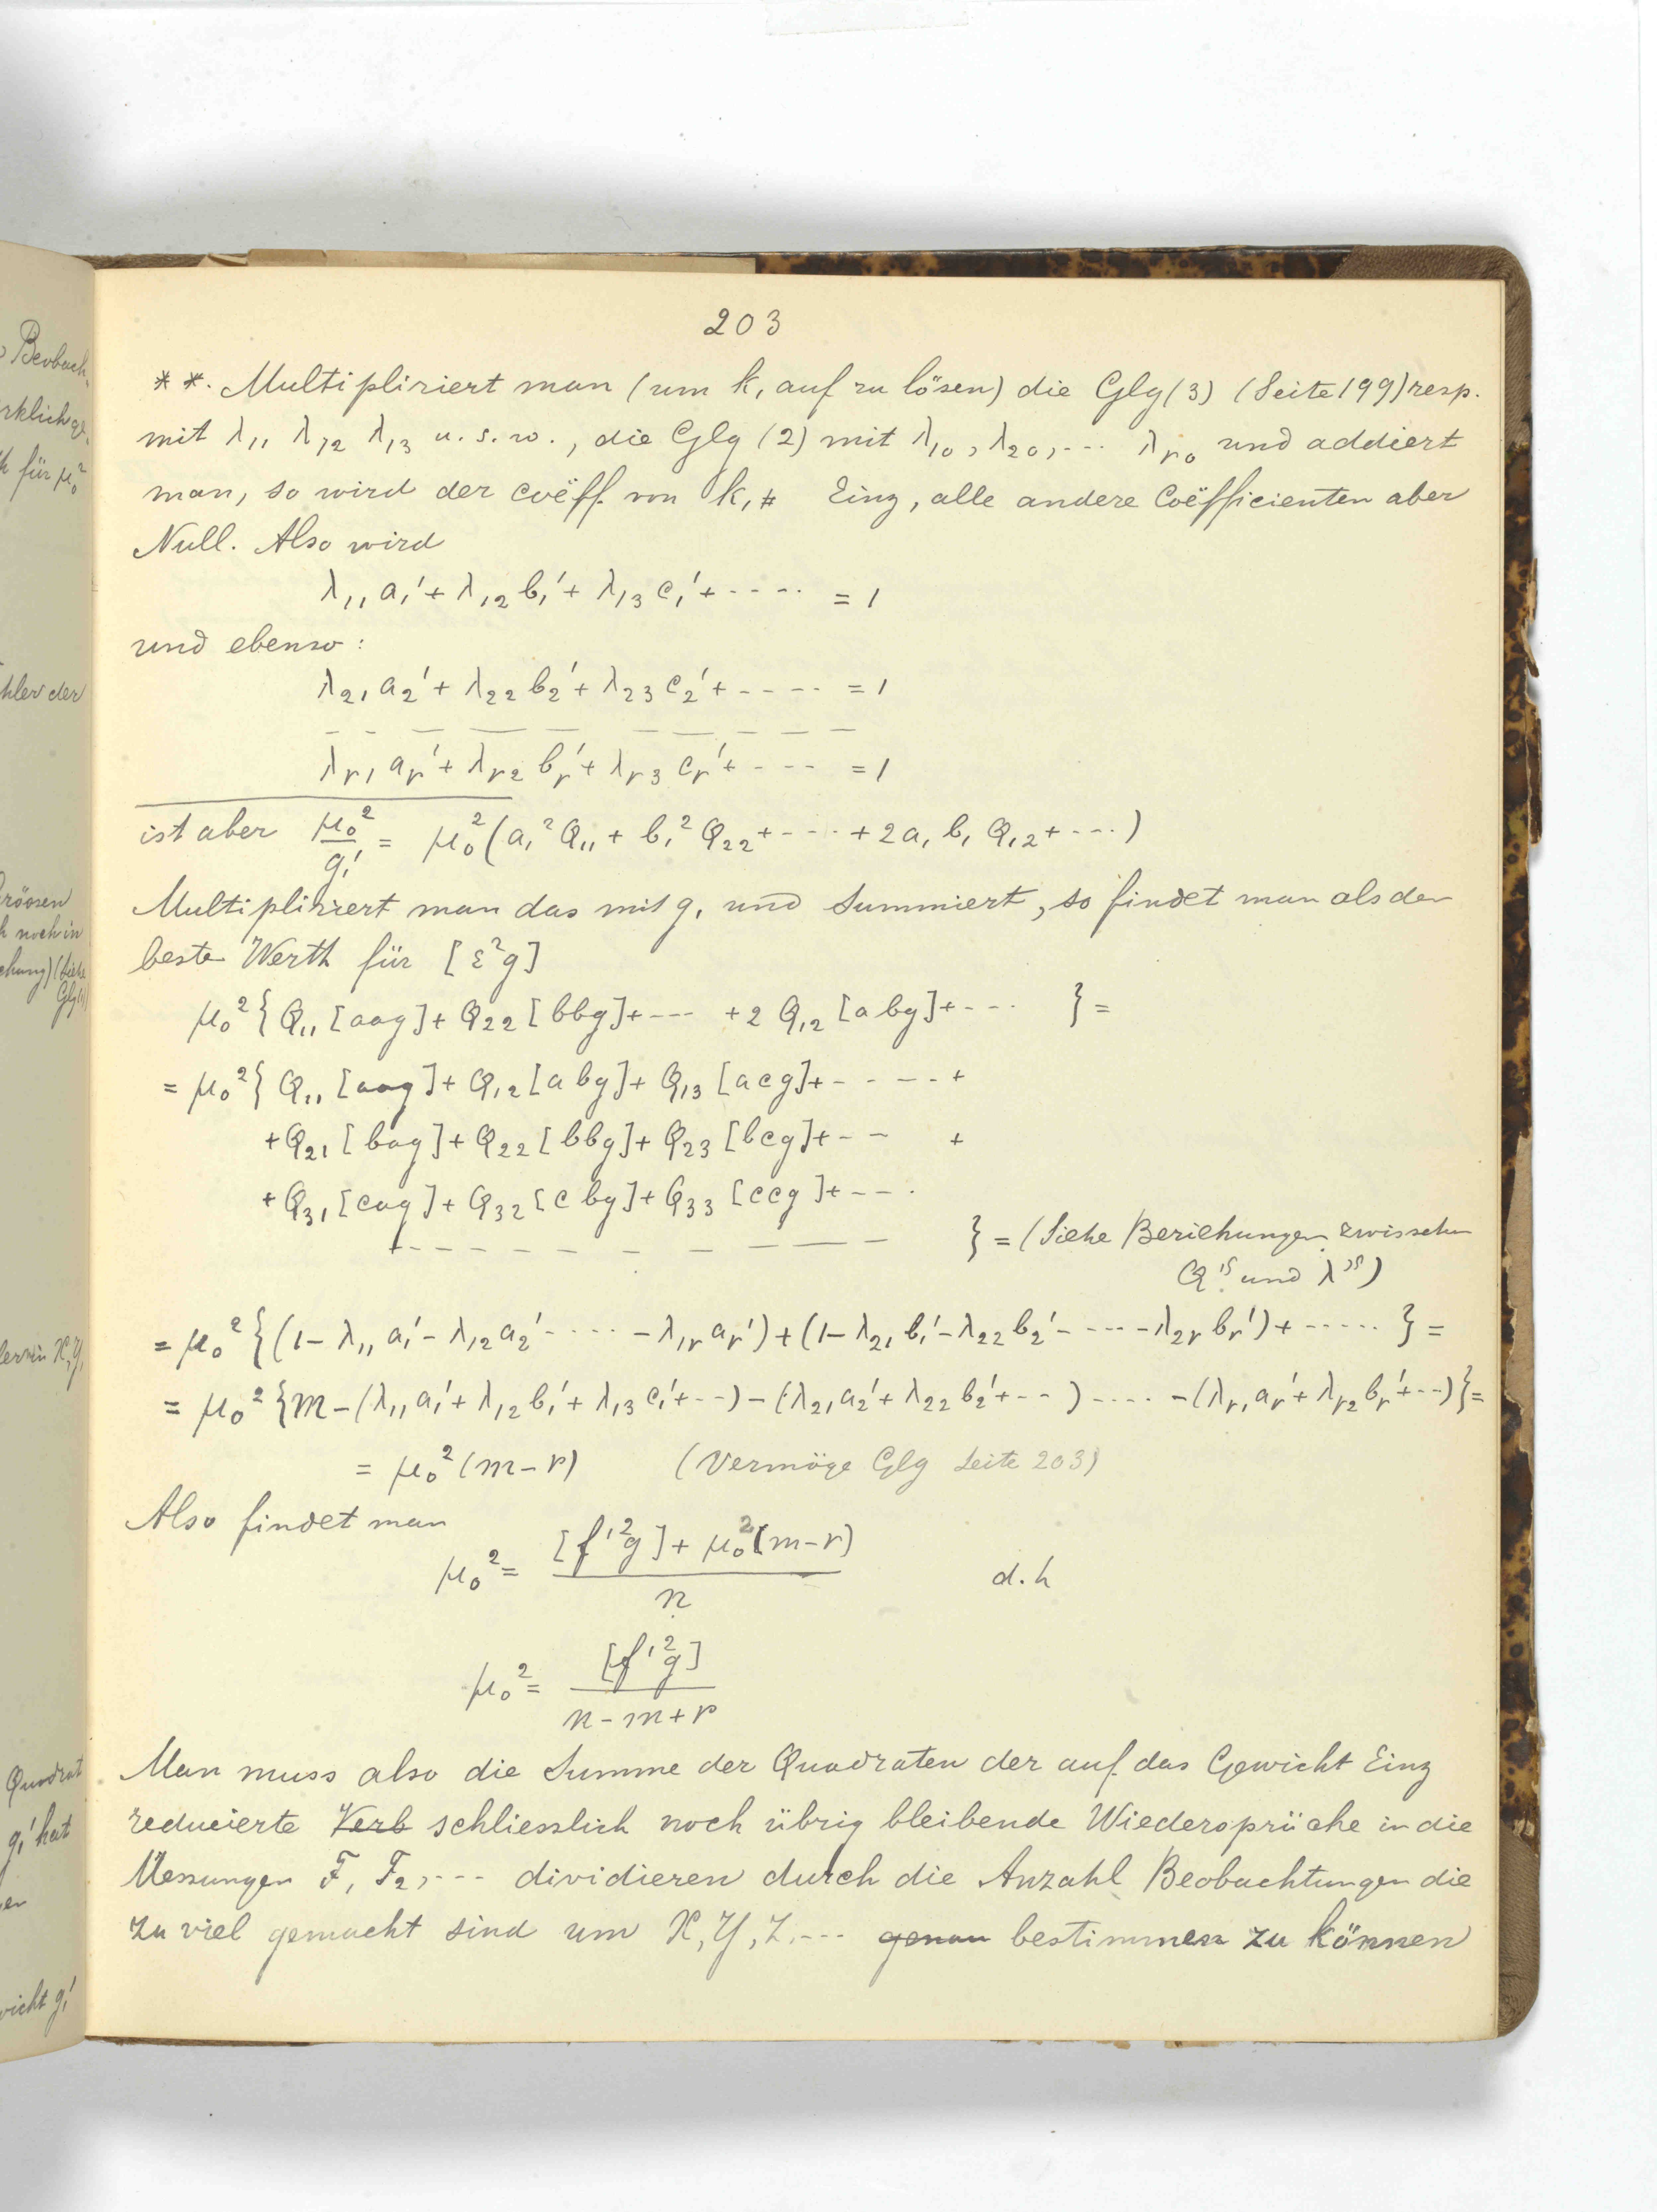 203
* *. Multipliziert man (um k₁ auf zu lösen) die Glg (3) (Seite 199) resp.
mit λ₁₁ λ₁₂ λ₁₃ u. s. w., die Glg (2) mit λ₁₀, λ₂₀, --- λᵣ₀ und addiert
man, so wird der coëff. von k₁ Einz, alle andere Coëfficienten aber
Null. Also wird
λ₁₁ a₁' + λ₁₂ b₁' + λ₁₃ c₁' + ----- = 1
und ebenso:
λ₂₁ a₂' + λ₂₂ b₂' + λ₂₃ c₂' + ----- = 1
λᵣ₁ aᵣ' + λᵣ₂ bᵣ' + λᵣ₃ cᵣ' + ---- = 1
ist aber μ₀²/g₁' = μ₀² (a₁² Q₁₁ + b₁² Q₂₂ + ---- + 2a₁ b₁ Q₁₂ + ---)
Multipliziert man das mit g₁ und Summiert, so findet man als der
beste Werth für [ε²g]
μ₀² { Q₁₁ [aag] + Q₂₂ [bbg] + --- + 2 Q₁₂ [abg] + --- } =
= μ₀² { Q₁₁ [aag] + Q₁₂ [abg] + Q₁₃ [acg] + ----- +
+ Q₂₁ [bag] + Q₂₂ [bbg] + Q₂₃ [bcg] + -- +
+ Q₃₁ [cag] + Q₃₂ [cbg] + Q₃₃ [ccg] + ---
+ --------- } = (Siehe Beziehungen zwischen
Q'ˢ und λ'ˢ)
= μ₀² { (1 - λ₁₁ a₁' - λ₁₂ a₂' ----- - λ₁ᵣ aᵣ') + (1 - λ₂₁ b₁' - λ₂₂ b₂' - --- - λ₂ᵣ bᵣ') + ----- } =
= μ₀² { m - (λ₁₁ a₁' + λ₁₂ b₁' + λ₁₃ c₁' + --) - (λ₂₁ a₂' + λ₂₂ b₂' + -- ) ---- - (λᵣ₁ aᵣ' + λᵣ₂ bᵣ' + --) } =
= μ₀² (m - r) (Vermöge Glg Seite 203)
Also findet man
μ₀² = ([f'²g] + μ₀² (m - r))/n d. h
μ₀² = [f'²g]/(n - m + r)
Man muss also die Summe der Quadraten der auf das Gewicht Einz
reducierte Verb schliesslich noch übrig bleibende Wiedersprüche in die
Messungen F₁ F₂, --- dividieren durch die Anzahl Beobachtungen die
zu viel gemacht sind um X, Y, Z, --- genau bestimmen zu können